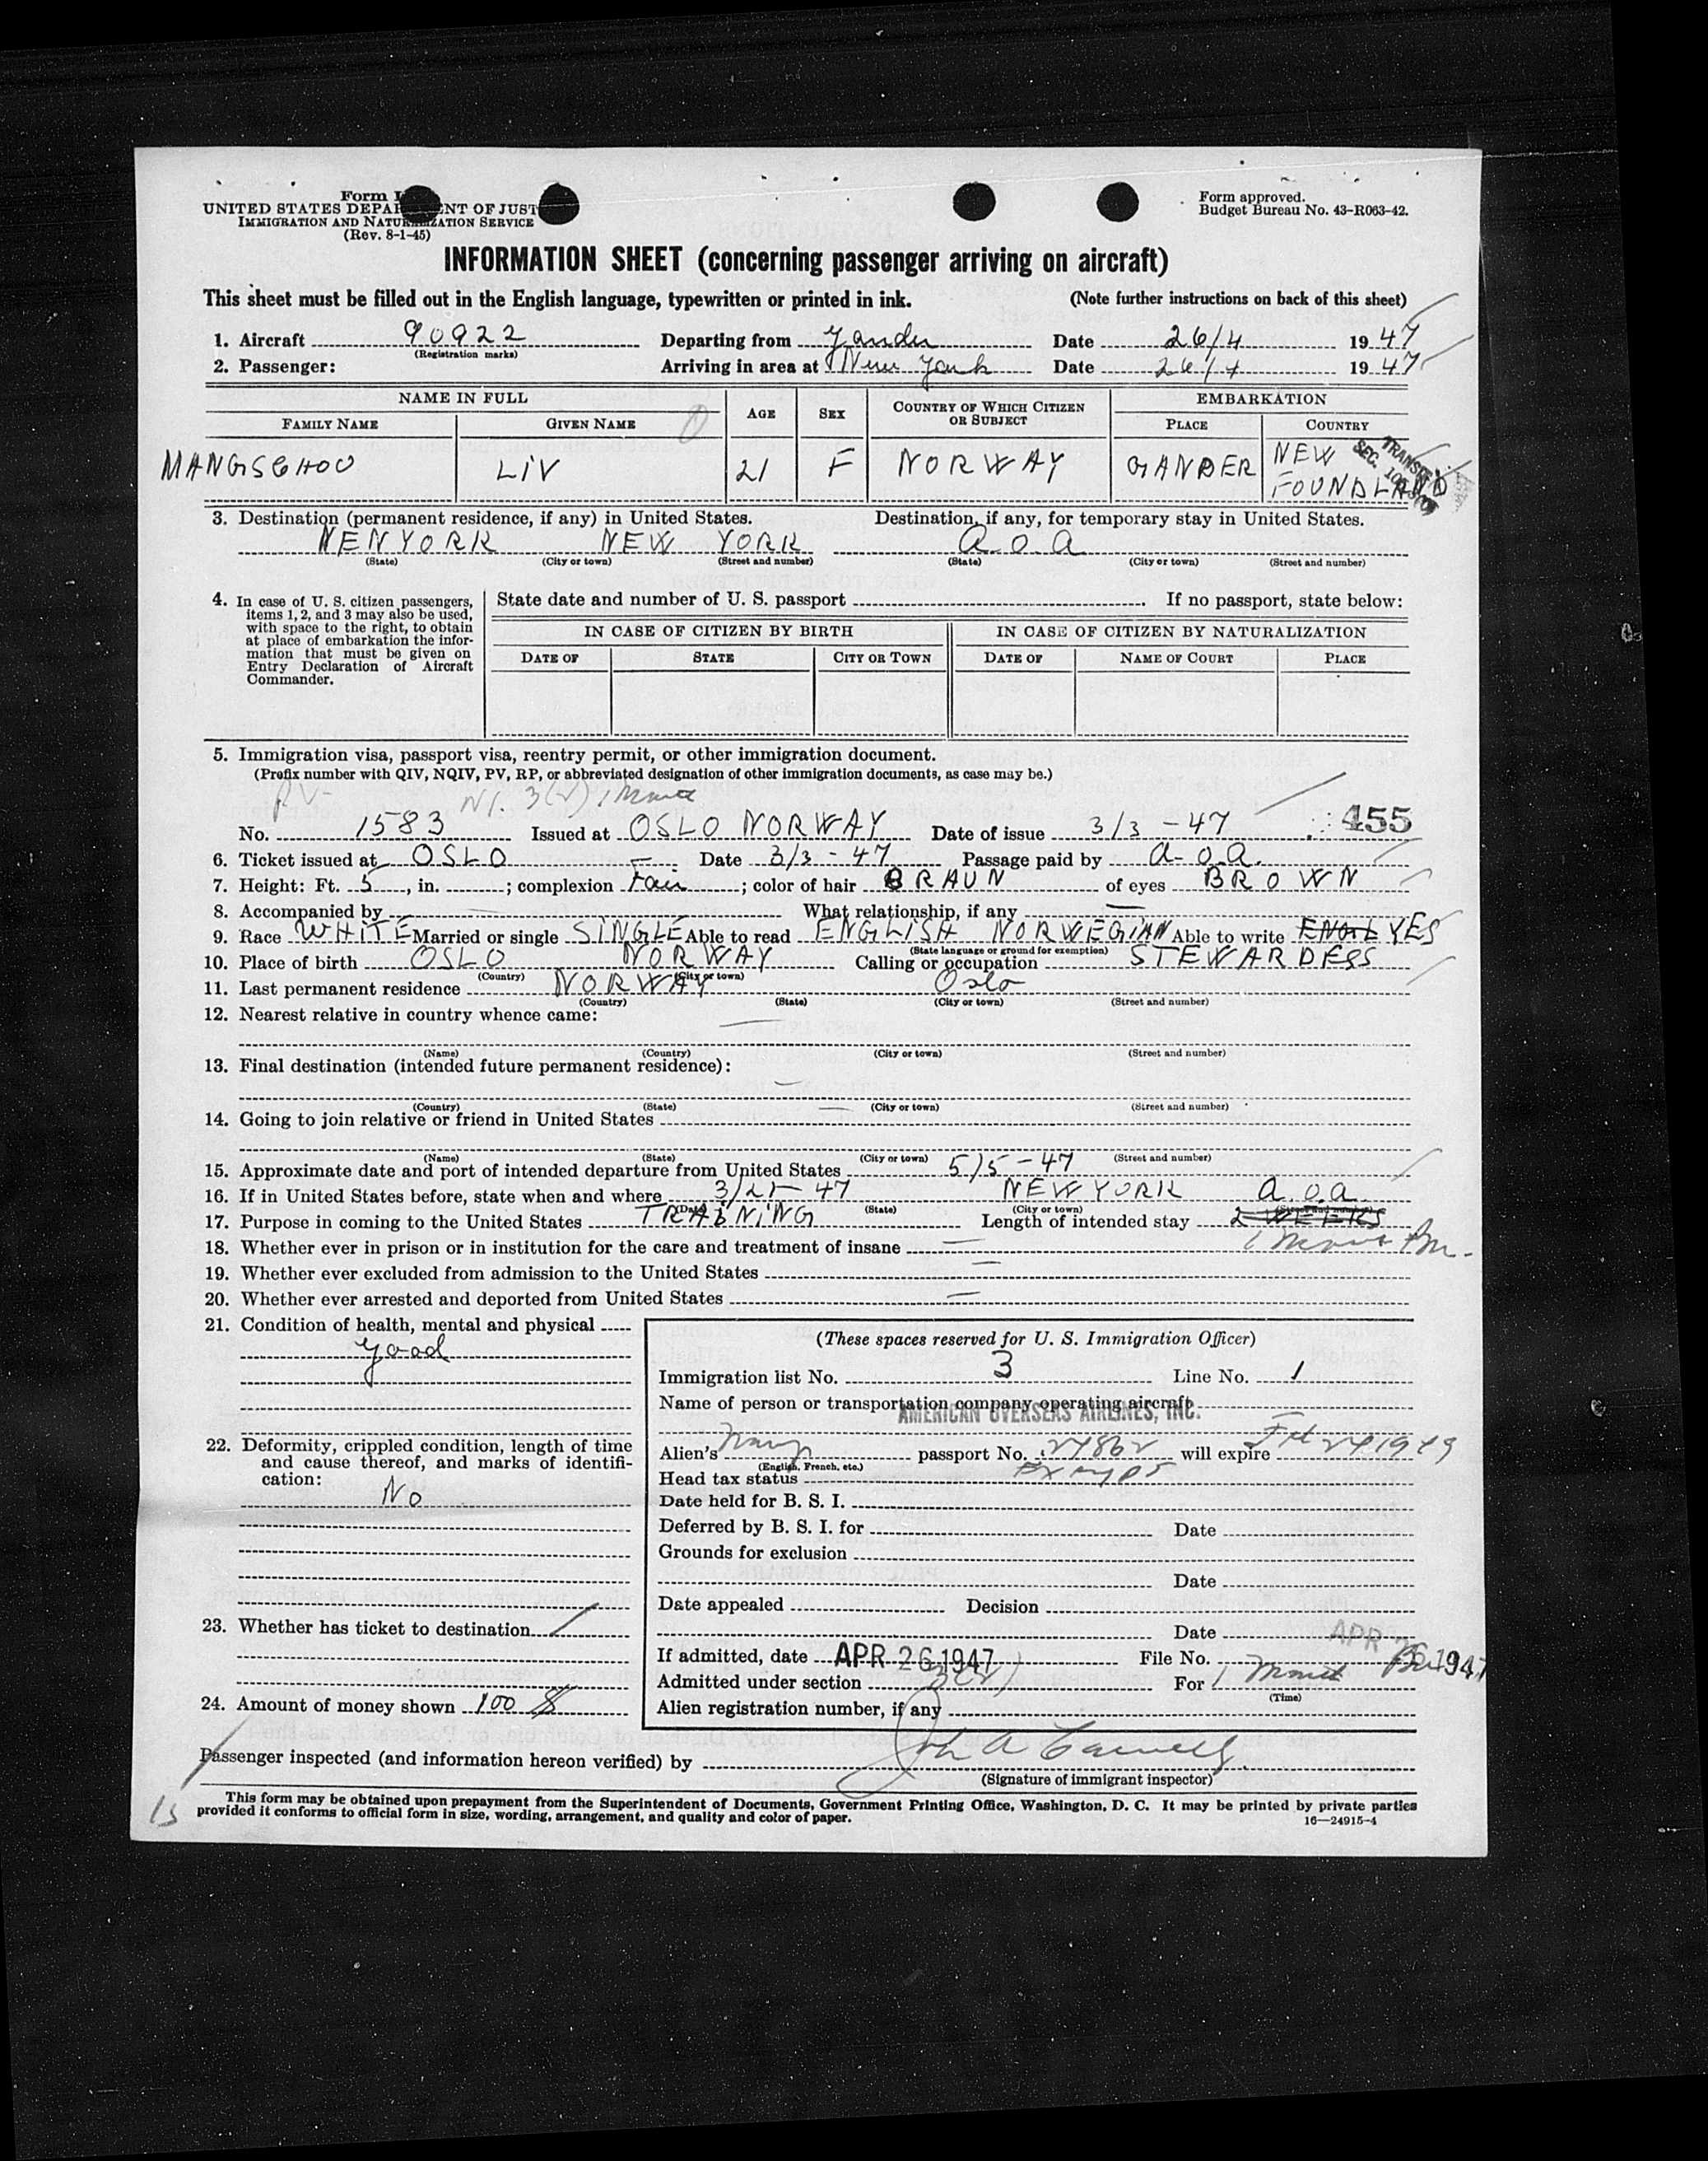 Form I
UNITED STATES DEPARTMENT OF JUST
IMMIGRATION AND NATURALIZATION SERVICE
(Rev. 8-1-45)
Form approved.
Budget Bureau No. 43-R063-42.
INFORMATION SHEET (concerning passenger arriving on aircraft)
This sheet must be filled out in the English language, typewritten or printed in ink. (Note further instructions on back of this sheet)
1. Aircraft 90922 Departing from Gander Date 26/4 1947
(Registration marks)
2. Passenger: Arriving in area at New York Date 26/4 1947
NAME IN FULL AGE SEX COUNTRY OF WHICH CITIZEN OR SUBJECT EMBARKATION
FAMILY NAME GIVEN NAME PLACE COUNTRY
LIV 21 F NORWAY GANDER NEW FOUNDLAND
3. Destination (permanent residence, if any) in United States. Destination, if any, for temporary stay in United States.
NEW YORK NEW YORK a.o.a
(State) (City or town) (Street and number) (State) (City or town) (Street and number)
4. In case of U. S. citizen passengers, items 1, 2, and 3 may also be used, with space to the right, to obtain at place of embarkation the information that must be given on Entry Declaration of Aircraft Commander.
State date and number of U. S. passport If no passport, state below:
IN CASE OF CITIZEN BY BIRTH IN CASE OF CITIZEN BY NATURALIZATION
DATE OF STATE CITY OR TOWN DATE OF NAME OF COURT PLACE
5. Immigration visa, passport visa, reentry permit, or other immigration document.
(Prefix number with QIV, NQIV, PV, RP, or abbreviated designation of other immigration documents, as case may be.)
PV- 3(2) 1 Month
No. 1583 Issued at OSLO NORWAY Date of issue 3/3 - 47 455
6. Ticket issued at OSLO Date 3/3 - 47 Passage paid by a-o.a.
7. Height: Ft. 5, in. ; complexion Fair; color of hair BRAUN of eyes BROWN
8. Accompanied by — What relationship, if any —
9. Race WHITE Married or single SINGLE Able to read ENGLISH NORWEGIAN Able to write YES
(State language or ground for exemption)
10. Place of birth OSLO NORWAY Calling or occupation STEWARDESS
(Country) (City or town)
11. Last permanent residence NORWAY Oslo
(Country) (State) (City or town) (Street and number)
12. Nearest relative in country whence came: —
(Name) (Country) (City or town) (Street and number)
13. Final destination (intended future permanent residence): —
(Country) (State) (City or town) (Street and number)
14. Going to join relative or friend in United States —
(Name) (State) (City or town) (Street and number)
15. Approximate date and port of intended departure from United States 5/5 - 47
16. If in United States before, state when and where 47 NEW YORK a.o.a.
(Date) (State) (City or town) (Street and number)
17. Purpose in coming to the United States TRAINING Length of intended stay 2 WEEKS
1 Month
18. Whether ever in prison or in institution for the care and treatment of insane —
19. Whether ever excluded from admission to the United States —
20. Whether ever arrested and deported from United States —
21. Condition of health, mental and physical
good
22. Deformity, crippled condition, length of time and cause thereof, and marks of identification:
No
23. Whether has ticket to destination
24. Amount of money shown 100 $
(These spaces reserved for U. S. Immigration Officer)
Immigration list No. 3 Line No. 1
Name of person or transportation company operating aircraft
AMERICAN OVERSEAS AIRLINES, INC.
Alien's passport No. 24862 will expire 1949
(English, French, etc.)
Head tax status
Date held for B. S. I.
Deferred by B. S. I. for Date
Grounds for exclusion
Date
Date appealed Decision
Date
If admitted, date APR 26 1947 File No.
APR 26 1947
Admitted under section 3(2) For 1 Month
(Time)
Alien registration number, if any
Passenger inspected (and information hereon verified) by
(Signature of immigrant inspector)
This form may be obtained upon prepayment from the Superintendent of Documents, Government Printing Office, Washington, D. C. It may be printed by private parties
provided it conforms to official form in size, wording, arrangement, and quality and color of paper.
16—24915-4